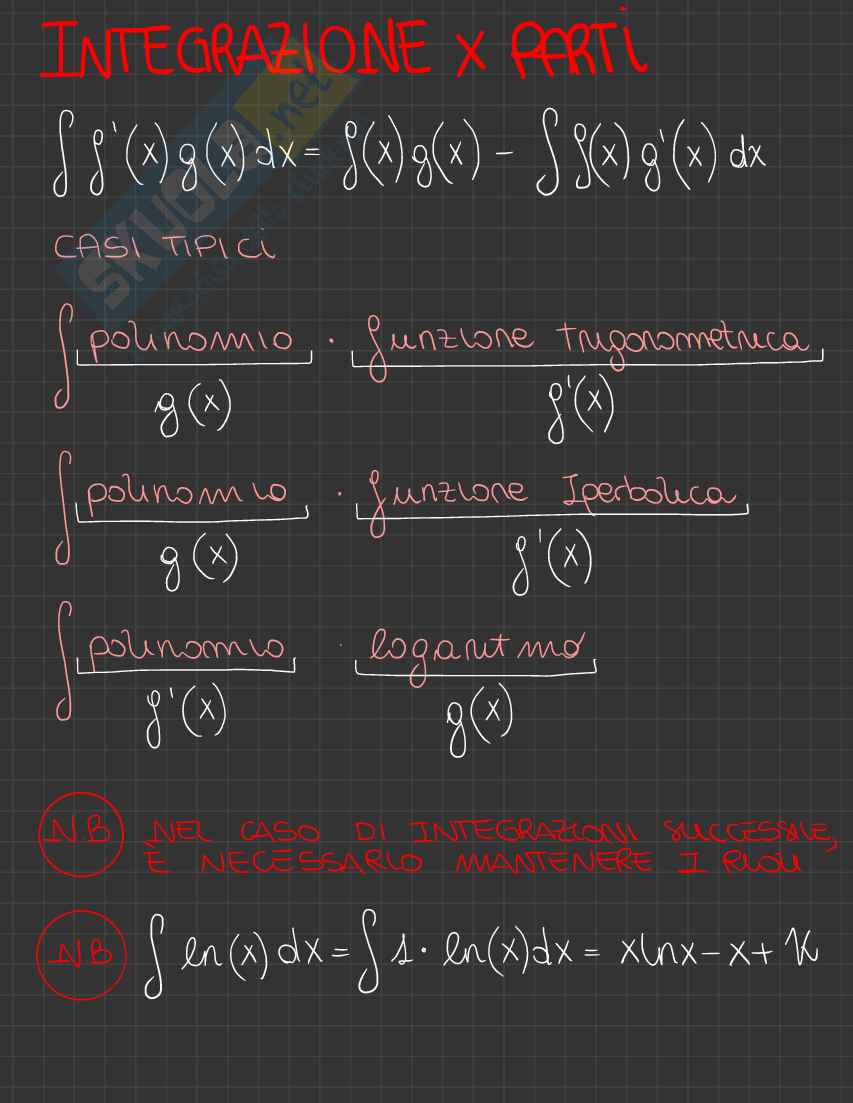 INTEGRAZIONE x PARTi
∫ f'(x) g(x) dx = f(x) g(x) - ∫ f(x) g'(x) dx
CASI TIPICi
∫ polinomio · funzione trigonometrica
g(x) f'(x)
∫ polinomio · funzione Iperbolica
g(x) f'(x)
∫ polinomio · logaritmo
f'(x) g(x)
N.B NEL CASO DI INTEGRAZIONI SUCCESSIVE,
È NECESSARIO MANTENERE I RUOLI
N.B ∫ ln(x) dx = ∫ 1 · ln(x) dx = x ln x - x + K
SKUOLA.net